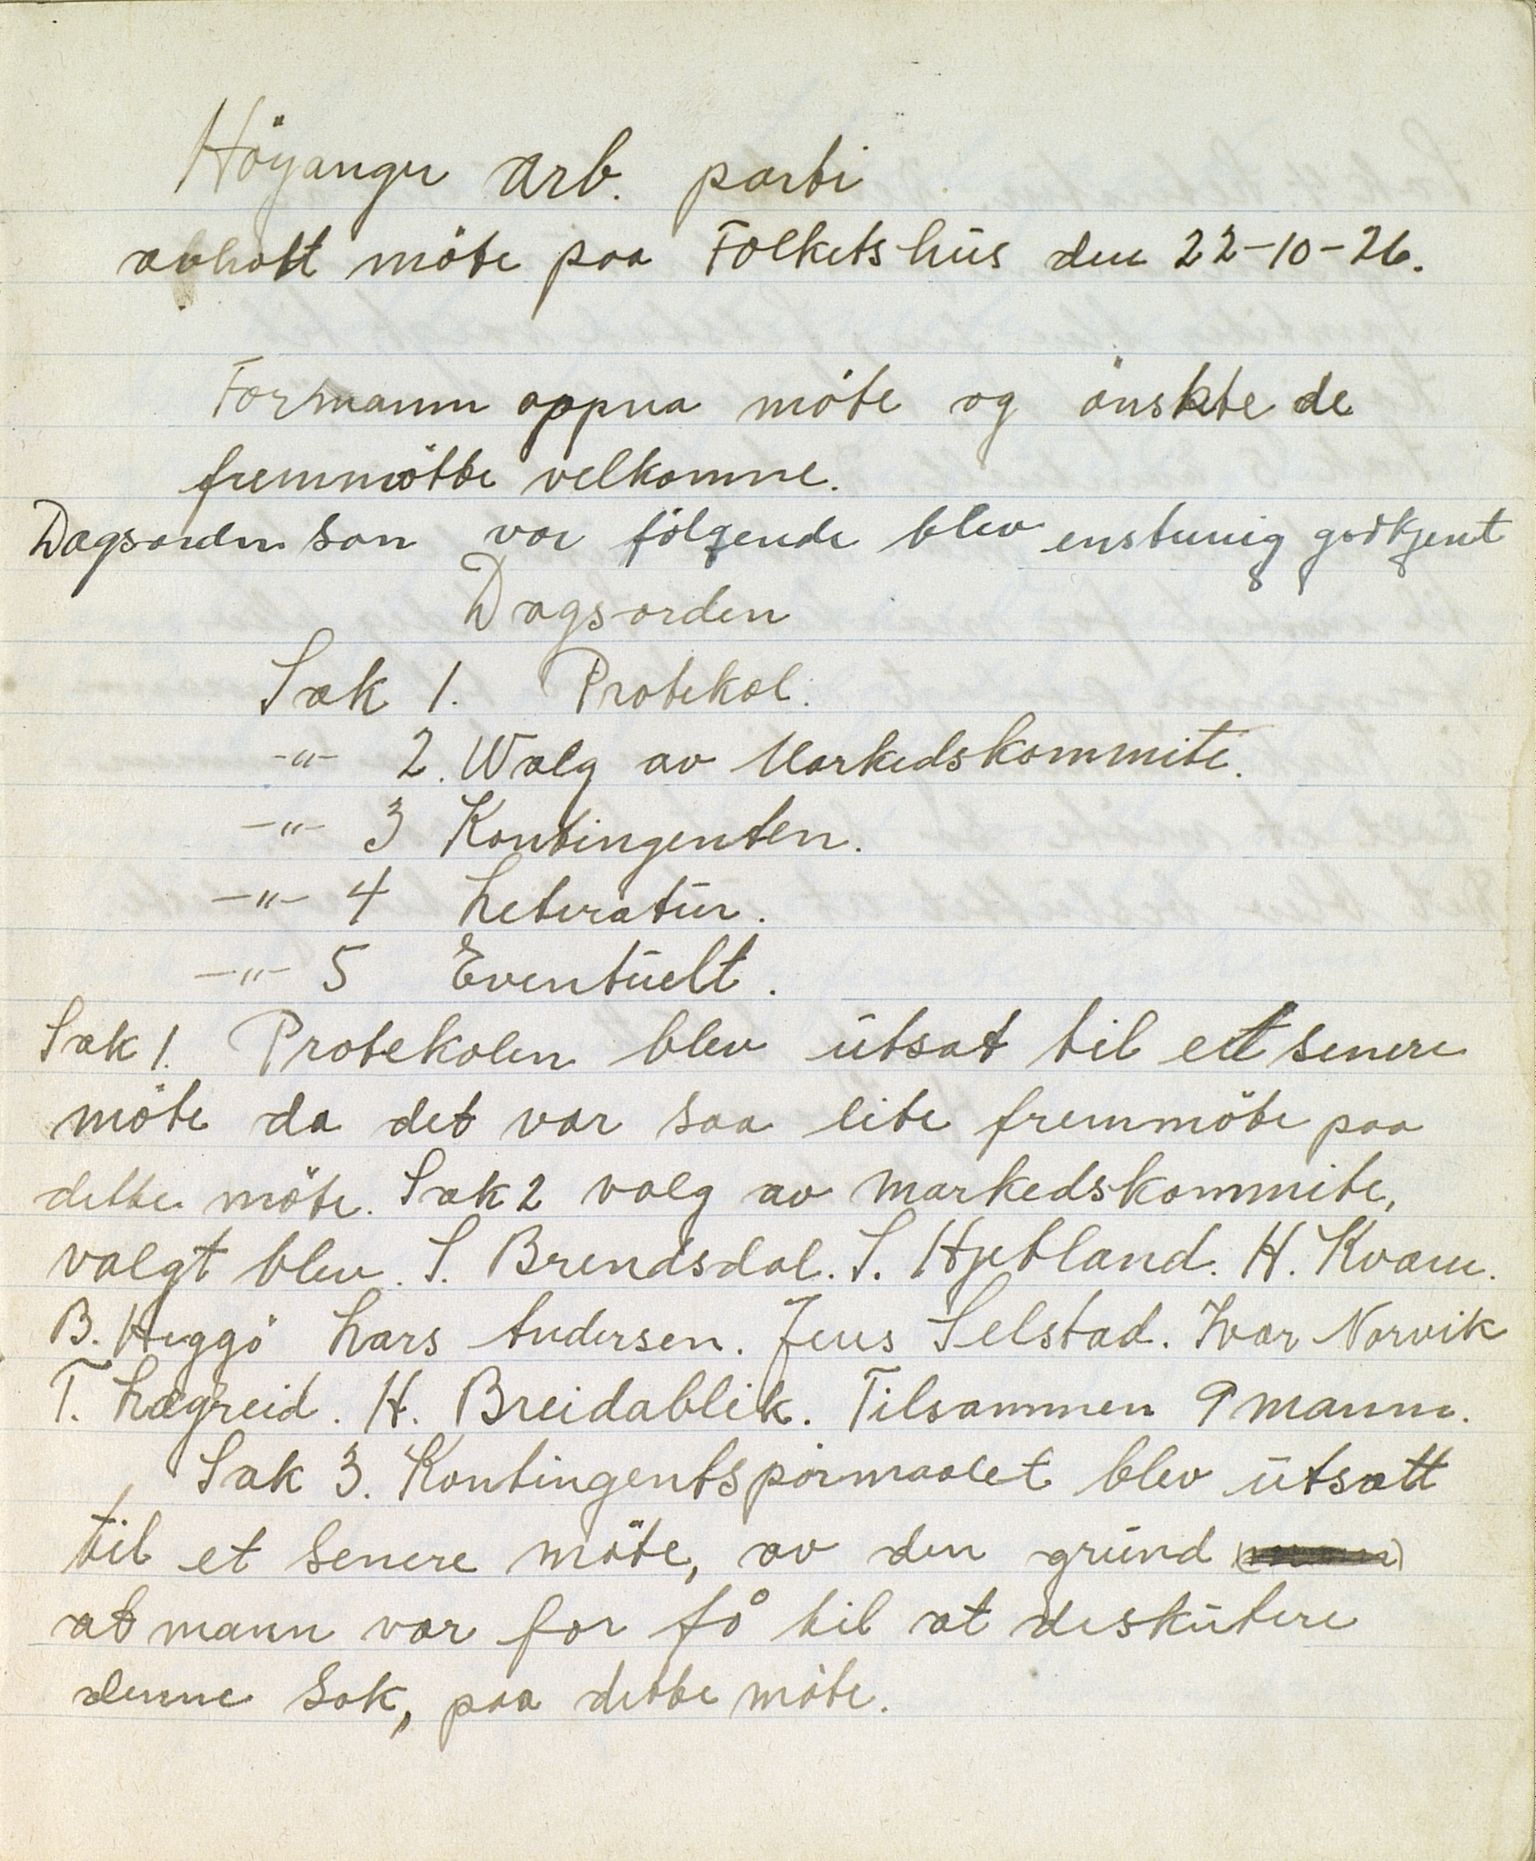 Höyanger arb. parti
avholt möte paa Folketshus den 22-10-26.
Formann oppna möte og önskte de
fremmötte velkomne.
Dagsorden som var fölgende blev enstemig godkjent
Dagsorden
Sak 1. Protekol.
-"- 2. Walg av Markedskommite.
-"- 3 Kontingenten.
-"- 4 Leteratur.
-"- 5 Eventuelt.
Sak 1. Protekolen blev utsat til ett senere
möte da det var saa lite fremmöte paa
dette möte. Sak 2 valg av markedskommite,
valgt blev. S. Brendsdal. S. Hjetland. H. Kvam.
B. Heggö Lars Andersen. Jens Selstad. Ivar Norvik
T. Lægreid. H. Breidablik. Tilsammen 9 mann.
Sak 3. Kontingentspörmaalet blev utsatt
til et senere möte, av den grund
at mann var for få til at deskutere
denne sak, paa dette möte.